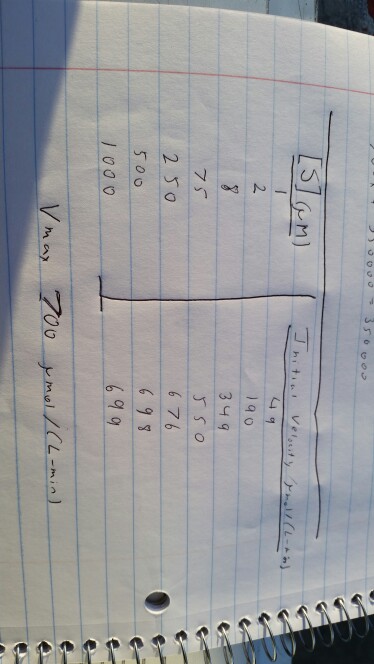 350000 = 350000
[S] (µM) Initial Velocity µmol/(L-min)
1 49
2 190
8 349
75 550
250 676
500 698
1000 699
Vmax 700 µmol/(L-min)